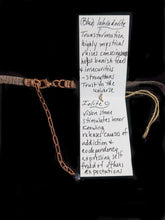 Blue labradorite
Transformation
highly mystical
raises consciousness
helps banish fears
& insecurities
strengthens
Trust in the
universe
Iolite
Vision stone
stimulates inner
Knowing
releases causes of
addiction &
codependency
expressing self
free of others
expectations